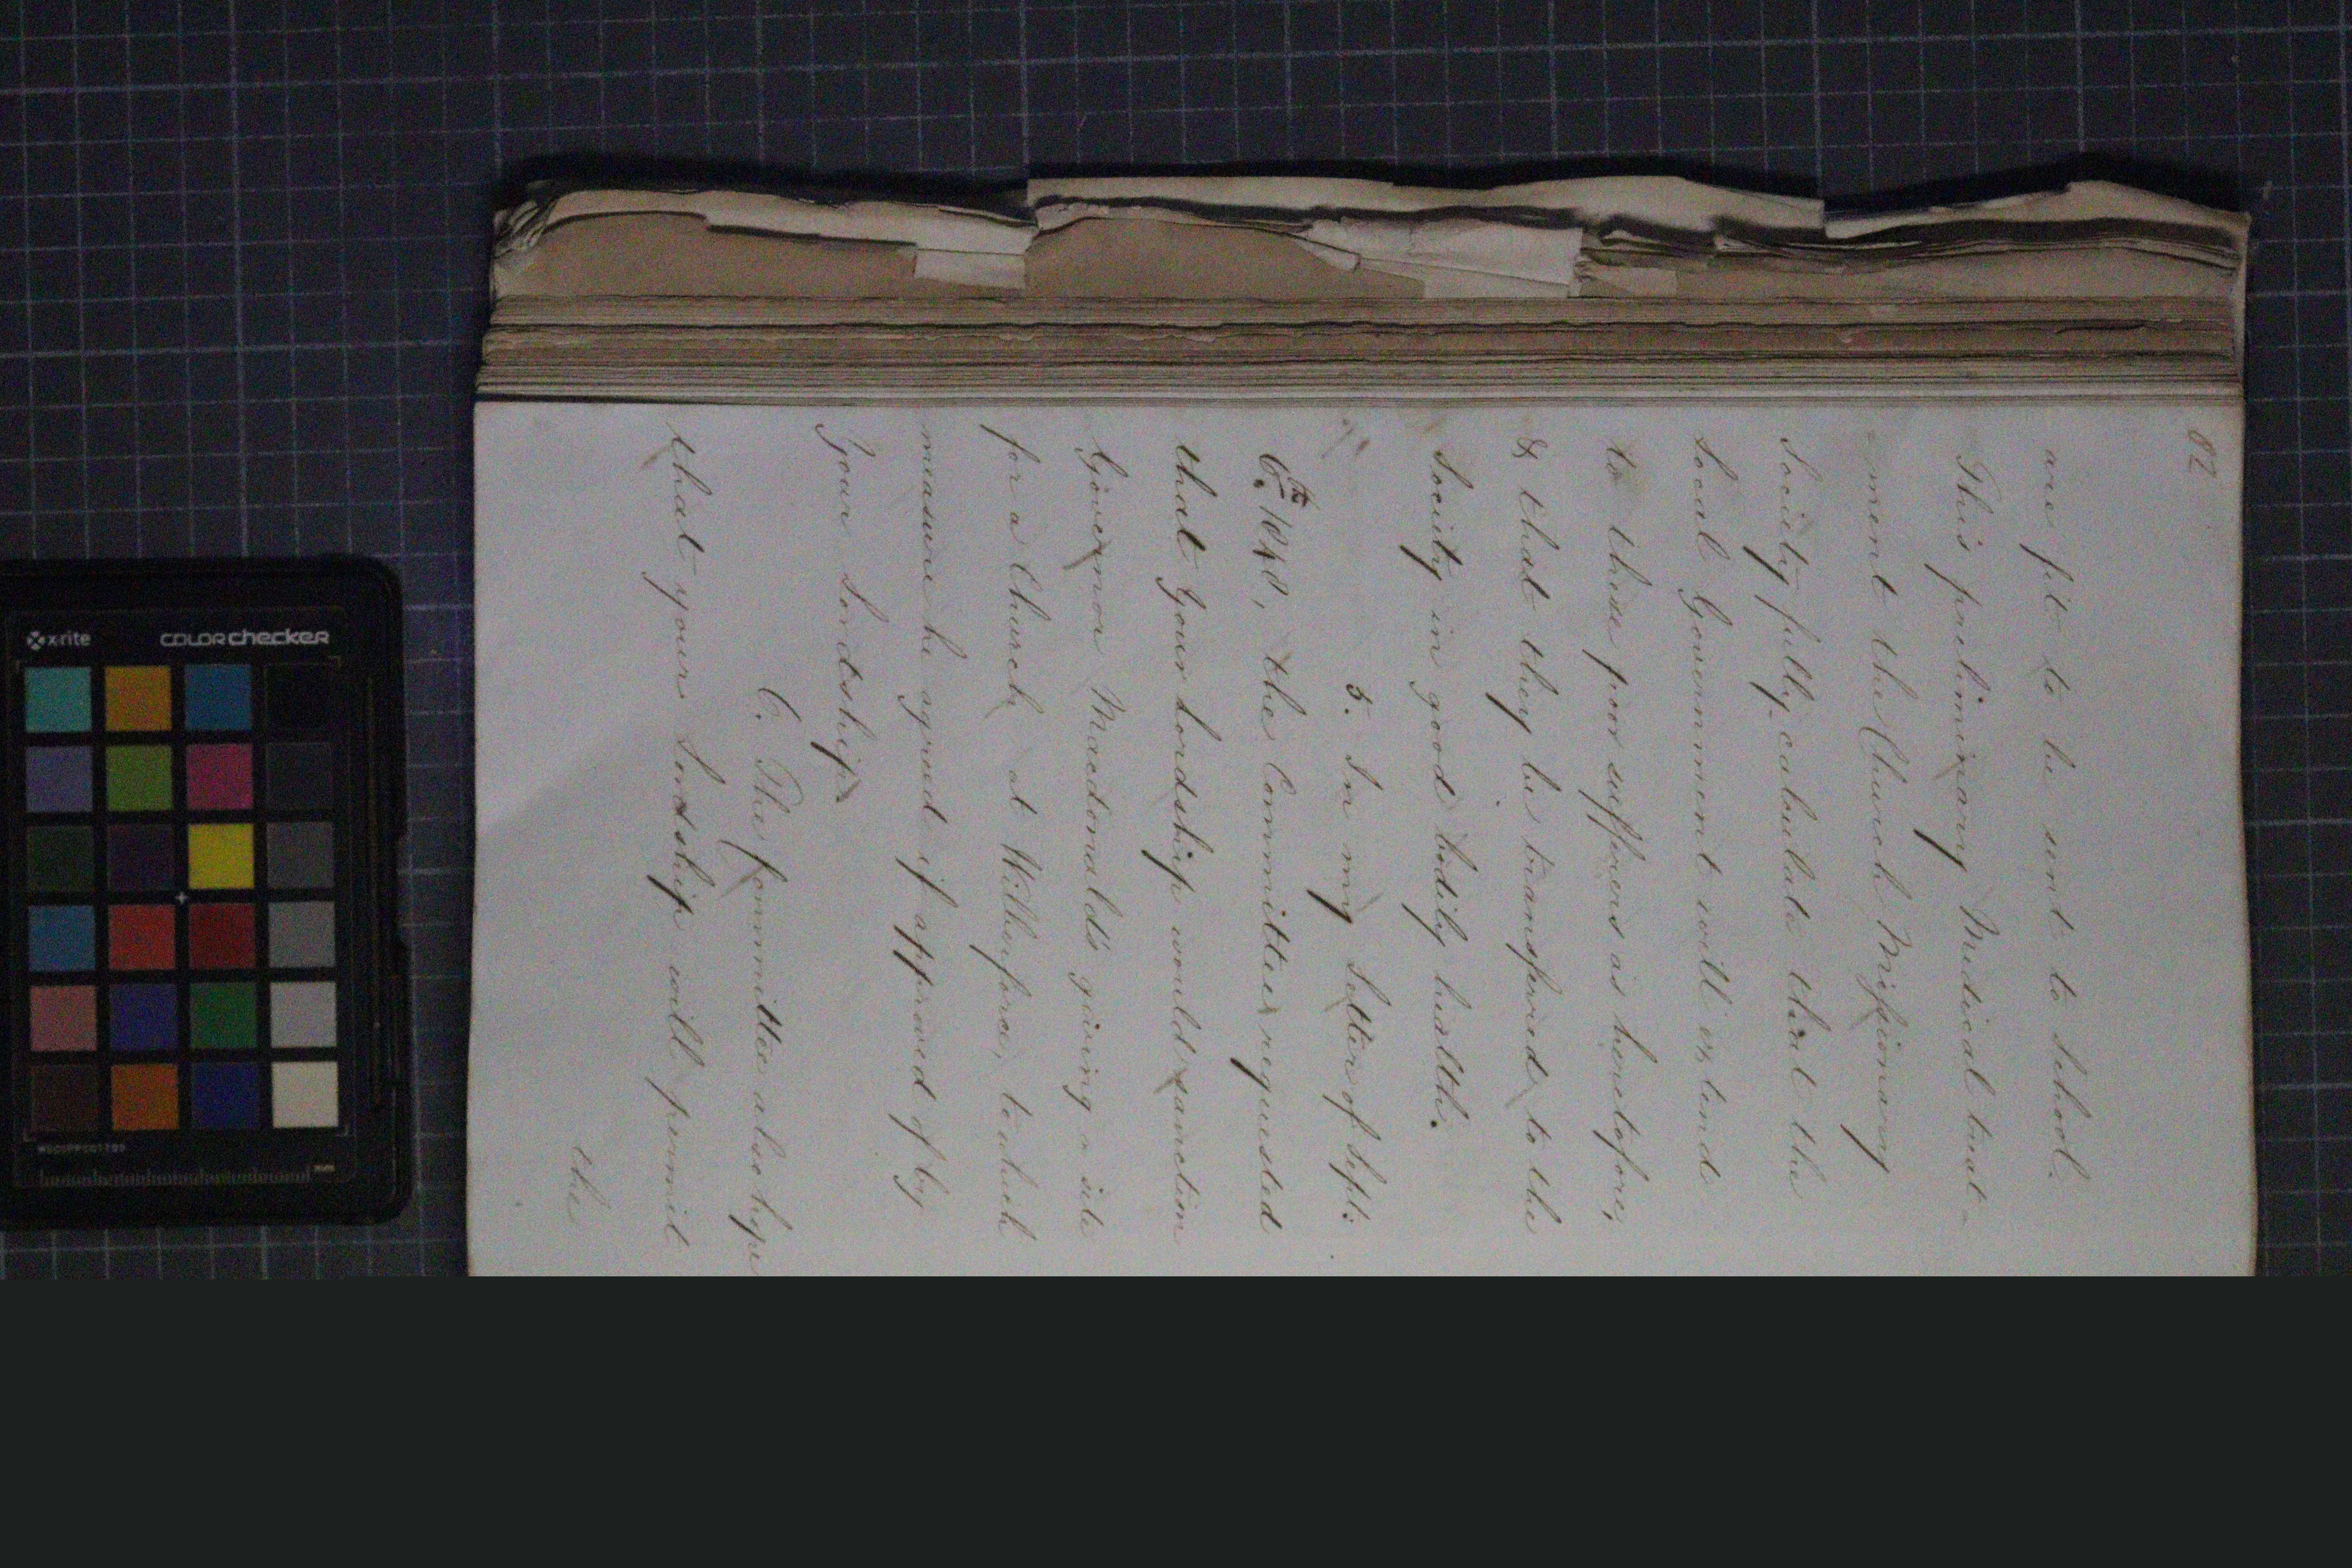 82
are fit to be sent to School.
This preliminary Medical treat-
-ment the Church Missionary
Society fully calculate that the
Local Government will extend
to these poor sufferers as heretofore,
& that they be transferred to the
Society in good bodily health.
5. In my Letter of Sept:
6th 1848, the Committee requested
that Your Lordship would sanction
Governor Macdonald's giving a site
for a Church at Wilberforce, to which
measure he agreed if approved of by
Your Lordship
6. The Committee also hope
that your Lordship will permit
the
x-rite
COLORchecker
mm